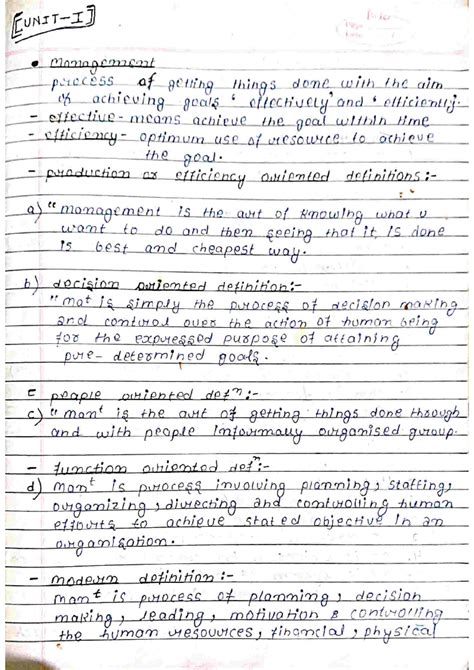 [UNIT-I]
• management
process of getting things done with the aim
of achieving goals 'effectively' and 'efficiently'.
- effective - means achieve the goal within time
- efficiency - optimum use of resource to achieve
the goal.
- production or efficiency oriented definitions:-
a) "management is the art of knowing what u
want to do and then seeing that it is done
is best and cheapest way.
b) decision oriented definition:-
"mat is simply the process of decision making
and control over the action of human being
for the expressed purpose of attaining
pre-determined goals.
people oriented defⁿ:-
c) "manᵗ is the art of getting things done through
and with people informally organised group.
- function oriented defⁿ:-
d) manᵗ is process involving planning, staffing,
organizing, directing and controlling human
efforts to achieve stated objective in an
organisation.
- modern definition:-
manᵗ is process of planning, decision
making, leading, motivation & controlling
the human resources, financial, physical